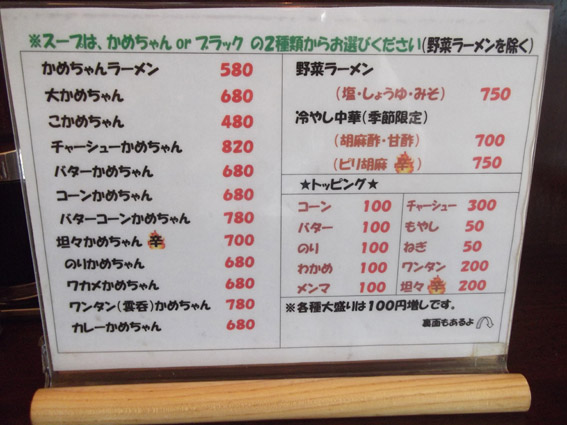 ※スープは、かめちゃん or ブラック の2種類からお選びください(野菜ラーメンを除く)
かめちゃんラーメン 580
大かめちゃん 680
こかめちゃん 480
チャーシューかめちゃん 820
バターかめちゃん 680
コーンかめちゃん 680
バターコーンかめちゃん 780
坦々かめちゃん 辛 700
のりかめちゃん 680
ワカメかめちゃん 680
ワンタン(雲呑)かめちゃん 780
カレーかめちゃん 680
野菜ラーメン
(塩・しょうゆ・みそ) 750
冷やし中華(季節限定)
(胡麻酢・甘酢) 700
(ピリ胡麻 辛) 750
★トッピング★
コーン 100
バター 100
のり 100
わかめ 100
メンマ 100
チャーシュー 300
もやし 50
ねぎ 50
ワンタン 200
坦々 辛 200
※各種大盛りは100円増しです。
裏面もあるよ